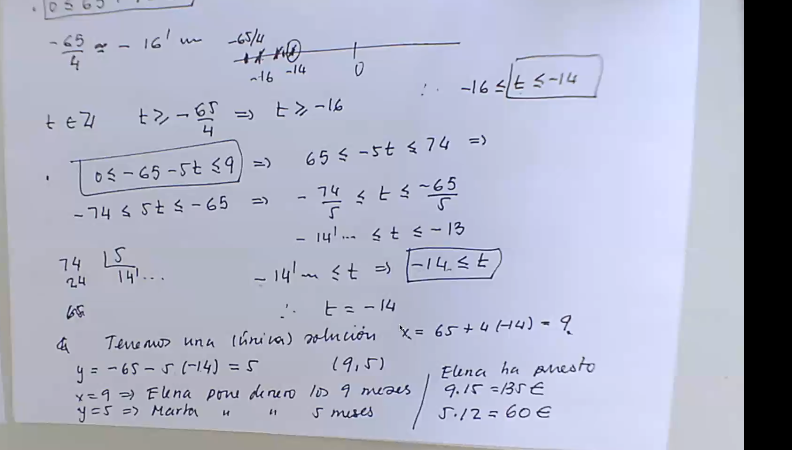 0 ≤ 65
-65/4 ≃ -16'... -65/4
-16 -14 0
∴ -16 ≤ t ≤ -14
t ∈ ℤ t ≥ -65/4 => t ≥ -16
· 0 ≤ -65 - 5t ≤ 9 => 65 ≤ -5t ≤ 74 =>
-74 ≤ 5t ≤ -65 => -74/5 ≤ t ≤ -65/5
-14'... ≤ t ≤ -13
74 |5
24 14'...
-14'... ≤ t => -14 ≤ t
∴ t = -14
Tenemos una (única) solución x = 65 + 4(-14) = 9
y = -65 - 5(-14) = 5 (9,5)
x=9 => Elena pone dinero los 9 meses
y=5 => Marta " " 5 meses
Elena ha puesto
9.15 = 135€
5.12 = 60€